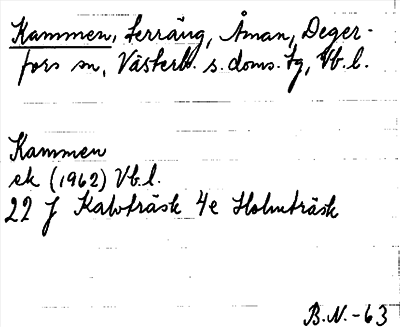 Kammen, terräng, Åman, Deger-
fors sn, Västerb. s. doms. tg, Vb.l.
Kammen
ek (1962) Vb.l.
22 J Kalvträsk 4e Holmträsk
B.N.-63